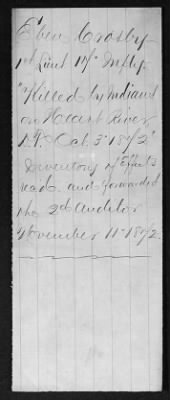 Eben Crosby
1st Lieut 17th Inft'y.
"Killed by Indians
on Heart River
D.T. Oct. 3d 1872"
Inventory of Effects
recd. and forwarded
the 2d Auditor
November 11th 1872.